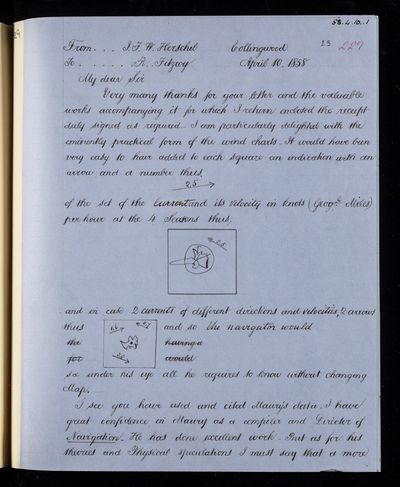 58.4.10.1
23 227
From . . . J. F. W. Herschel Collingwood
To . . . . . . R. Fitzroy April 10, 1858
My dear Sir
Very many thanks for your letter and the valuable
works accompanying it for which I return enclosed the receipt
duly signed as required. I am particularly delighted with the
eminently practical form of the wind charts. It would have been
very easy to have added to each square an indication with an
arrow and a number thus
25
of the set of the current and its velocity in knots (Geogl. Miles)
per hour at the 4 Seasons thus;
and in case 2 currents of different directions and velocities, 2 arrows
thus and so the navigator would
the having a
for would
see under his eye all he requires to know without changing
Map.
I see you have used and cited Maury's data. I have
great confidence in Maury as a compiler and Director of
Navigation. He has done excellent work. But as for his
theories and Physical speculations I must say that a more